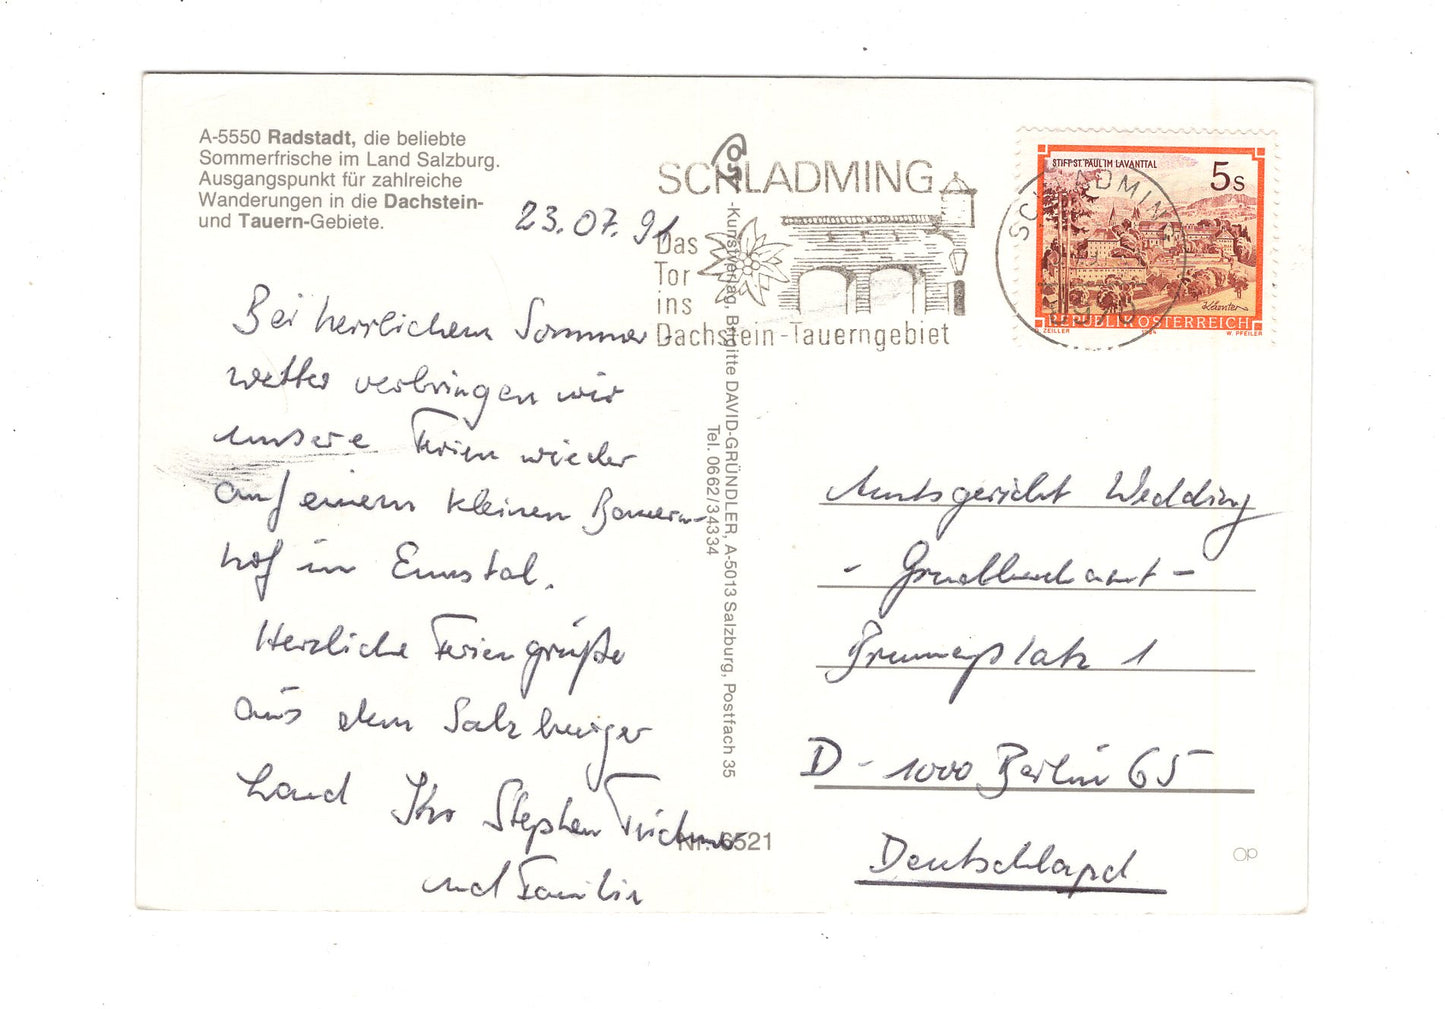 A-5550 Radstadt, die beliebte
Sommerfrische im Land Salzburg.
Ausgangspunkt für zahlreiche
Wanderungen in die Dachstein-
und Tauern-Gebiete.
23.07.91
Bei herrlichem Sommer-
wetter verbringen wir
unsere Ferien wieder
auf einem kleinen Bauern-
hof im Ennstal.
Herzliche Feriengrüße
aus dem Salzburger
Land Ihr Stephen
und Familie
Nr. 6521
-Kunstverlag, Brigitte DAVID-GRÜNDLER, A-5013 Salzburg, Postfach 35
Tel. 0662/34334
SCHLADMING
Das
Tor
ins
Dachstein-Tauerngebiet
SCHLADMING
STIFT ST. PAUL IM LAVANTTAL
5 S
REPUBLIK ÖSTERREICH
O. ZEILLER
W. PFEILER
Amtsgericht Wedding
- Grundbuchamt -
Brunnenplatz 1
D-1000 Berlin 65
Deutschland